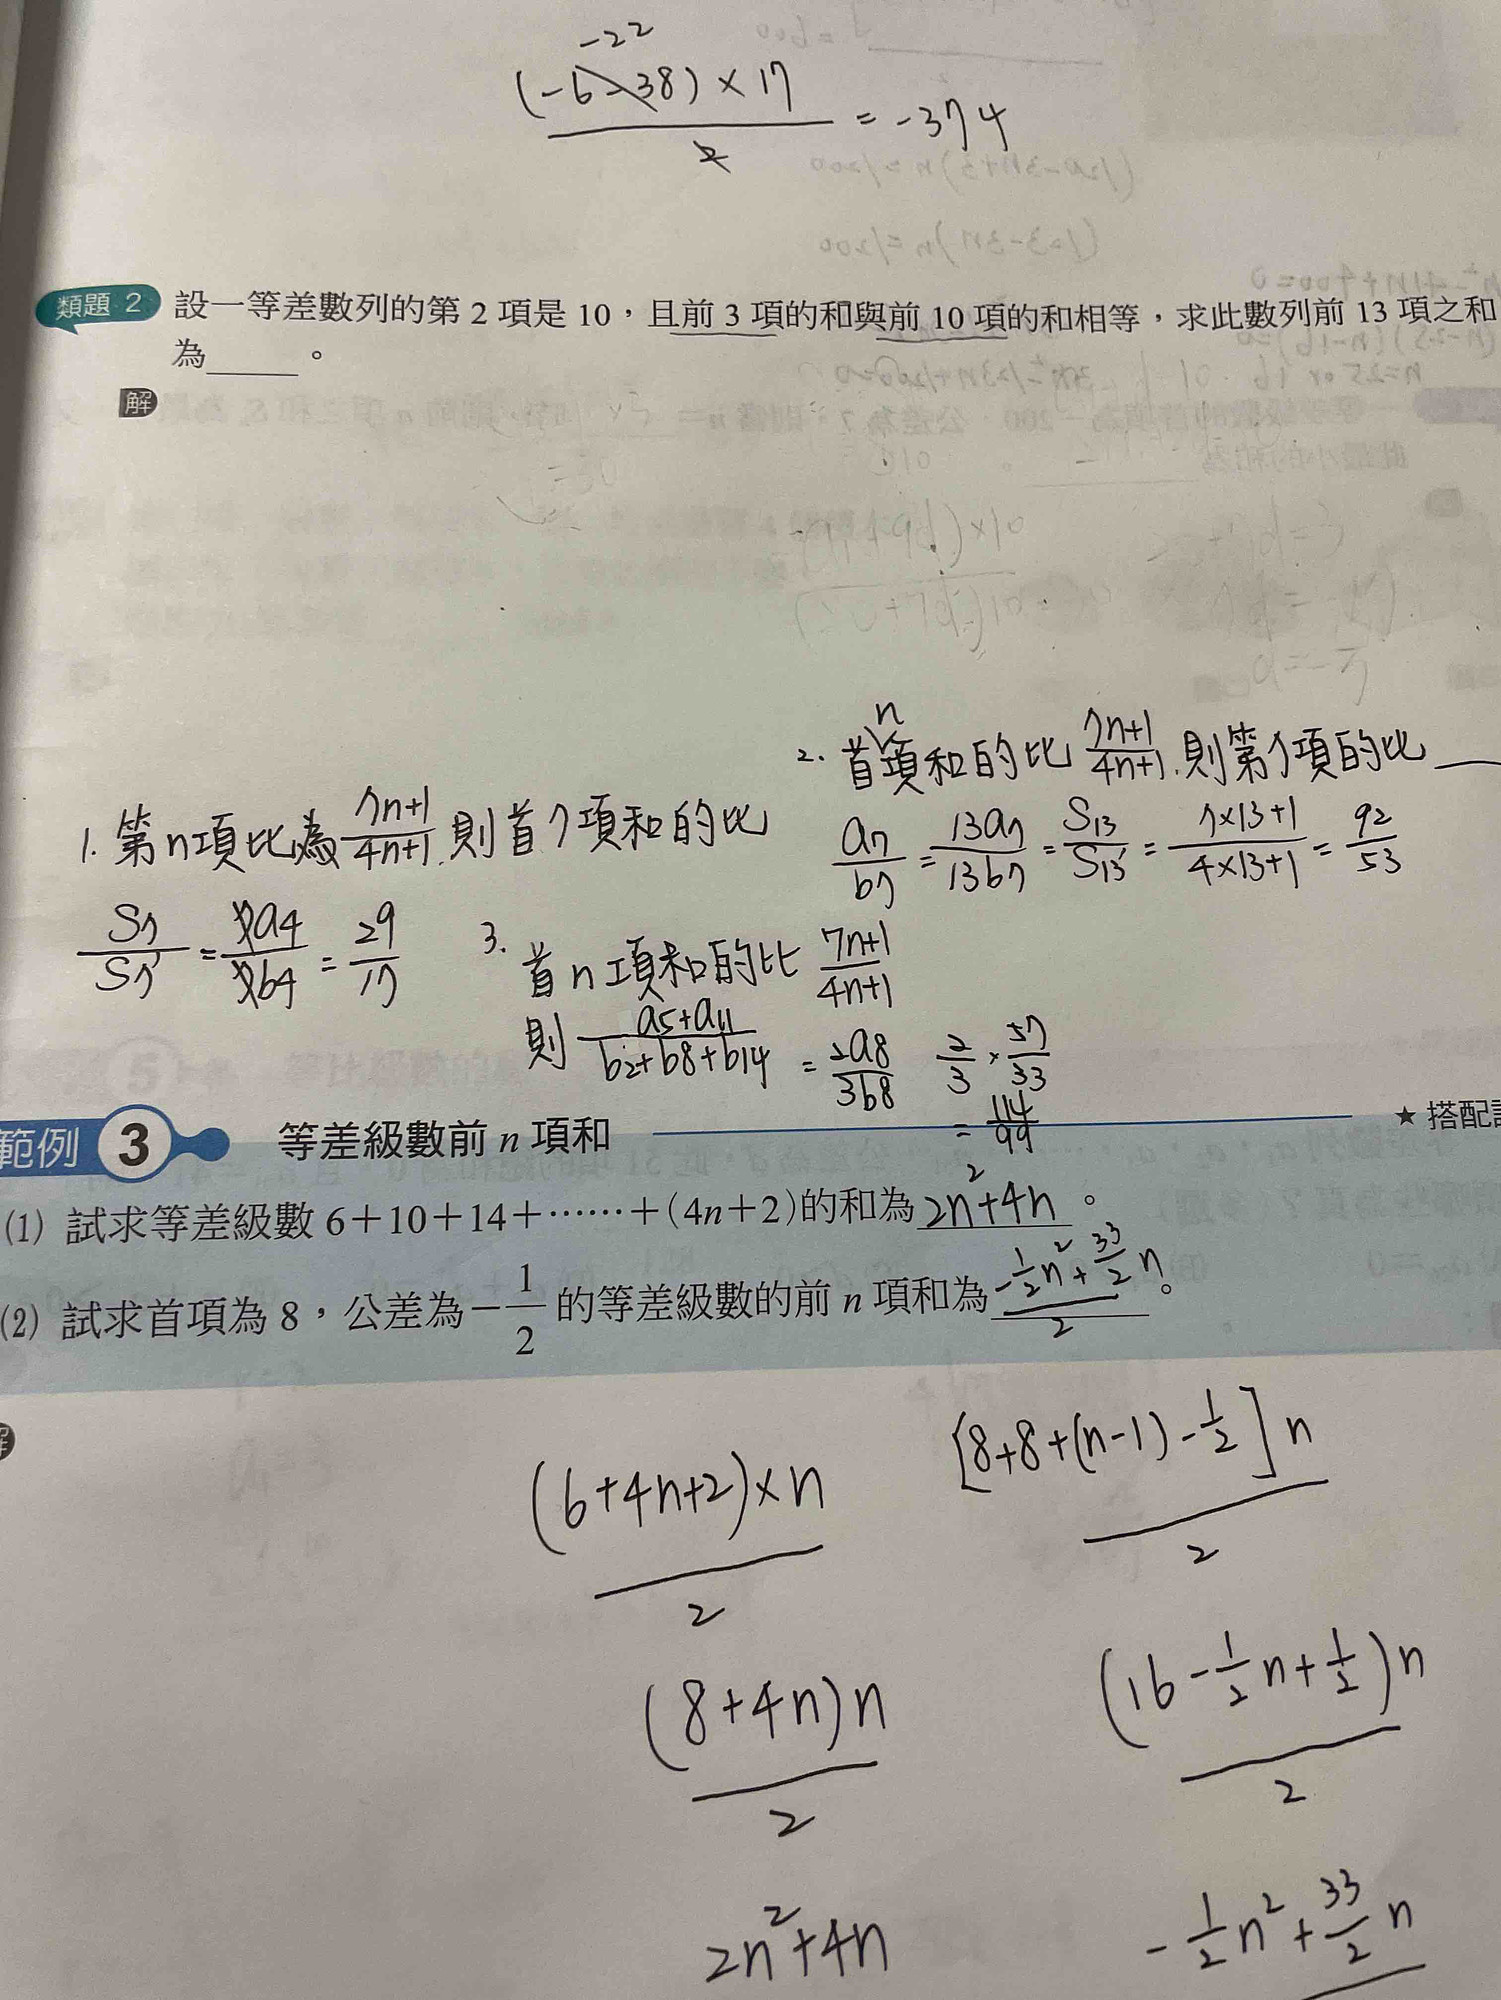 -22
(-6-38)×17 / 2 = -374
類題 2 設一等差數列的第 2 項是 10，且前 3 項的和與前 10 項的和相等，求此數列前 13 項之和
為______。
解
2. 首n項和的比 7n+1/4n+1，則第7項的比
a7/b7 = 13a7/13b7 = S13/S13' = 7×13+1/4×13+1 = 92/53
1. 第n項比為 7n+1/4n+1，則首7項和的比
S7/S7' = 7a4/7b4 = 29/17
3. 首n項和的比 7n+1/4n+1
則 a5+a11/b2+b8+b14 = 2a8/3b8 2/3 × 57/33
= 114/99
範例 3 等差級數前 n 項和 ★ 搭配
(1) 試求等差級數 6＋10＋14＋……＋(4n＋2)的和為 2n²+4n。
(2) 試求首項為 8，公差為 −1/2 的等差級數的前 n 項和為 -1/2n²+33/2n / 2。
(6+4n+2)×n / 2
[8+8+(n-1)-1/2]n / 2
(8+4n)n / 2
(16-1/2n+1/2)n / 2
2n²+4n
-1/2n²+33/2n